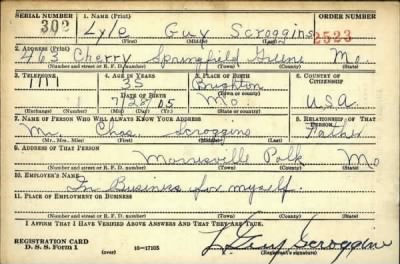 SERIAL NUMBER 1. NAME (Print) ORDER NUMBER
302 Lyle Guy Scroggins 2523
(First) (Middle) (Last)
2. ADDRESS (Print)
463 Cherry Springfield Greene Mo.
(Number and street or R. F. D. number) (Town) (County) (State)
3. TELEPHONE 4. AGE IN YEARS 5. PLACE OF BIRTH 6. COUNTRY OF CITIZENSHIP
35 Brighton
DATE OF BIRTH (Town or county)
7/28/05 Mo. U.S.A.
(Exchange) (Number) (Mo.) (Day) (Yr.) (State or country)
7. NAME OF PERSON WHO WILL ALWAYS KNOW YOUR ADDRESS 8. RELATIONSHIP OF THAT PERSON
Mr. Chas. Scroggins Father
(Mr., Mrs., Miss) (First) (Middle) (Last)
9. ADDRESS OF THAT PERSON
Morrisville Polk Mo
(Number and street or R. F. D. number) (Town) (County) (State)
10. EMPLOYER'S NAME
In Business for myself.
11. PLACE OF EMPLOYMENT OR BUSINESS
(Number and street or R. F. D. number) (Town) (County) (State)
I AFFIRM THAT I HAVE VERIFIED ABOVE ANSWERS AND THAT THEY ARE TRUE.
REGISTRATION CARD
D. S. S. Form 1 (over) 16-17105 L. Guy Scroggins
(Registrant's signature)